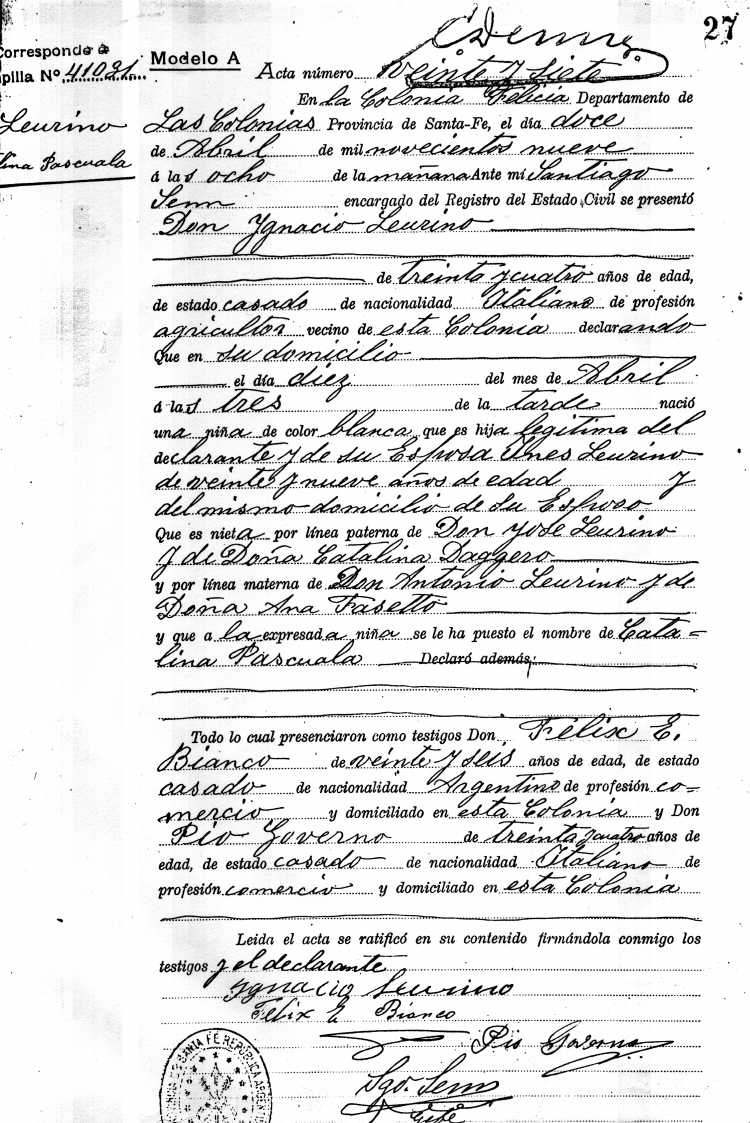 27
Corresponde a
Modelo A
pilla Nº 41021
Acta número veinte y siete
En la Colonia Felicia Departamento de
Leurino
Las Colonias Provincia de Santa-Fe, el día doce
lina Pascuala
de Abril de mil novecientos nueve
á las ocho de la mañana Ante mi Santiago
Senn encargado del Registro del Estado Civil se presentó
Don Ygnacio Leurino
de treinta y cuatro años de edad,
de estado casado de nacionalidad Italiano de profesión
agricultor vecino de esta Colonia declarando
Que en su domicilio
el día diez del mes de Abril
á las tres de la tarde nació
una niña de color blanca que es hija legitima del
declarante y de su Esposa Ines Leurino
de veinte y nueve años de edad y
del mismo domicilio de su Esposo
Que es nieta por línea paterna de Don Jose Leurino
y de Doña Catalina Daggero
y por línea materna de Don Antonio Leurino y de
Doña Ana Fasetto
y que a la expresada niña se le ha puesto el nombre de Cata=
lina Pascuala Declaró además:
Todo lo cual presenciaron como testigos Don Félix E.
Bianco de veinte y seis años de edad, de estado
casado de nacionalidad Argentino de profesión co=
mercio y domiciliado en esta Colonia y Don
Pío Governo de treinta y cuatro años de
edad, de estado casado de nacionalidad Italiano de
profesión comercio y domiciliado en esta Colonia
Leida el acta se ratificó en su contenido firmándola conmigo los
testigos y el declarante
Ygnacio Leurino
Felix E Bianco
Pio Governo
Sgo. Senn
Gefe
SANTA FE REPUBLICA ARGENTINA